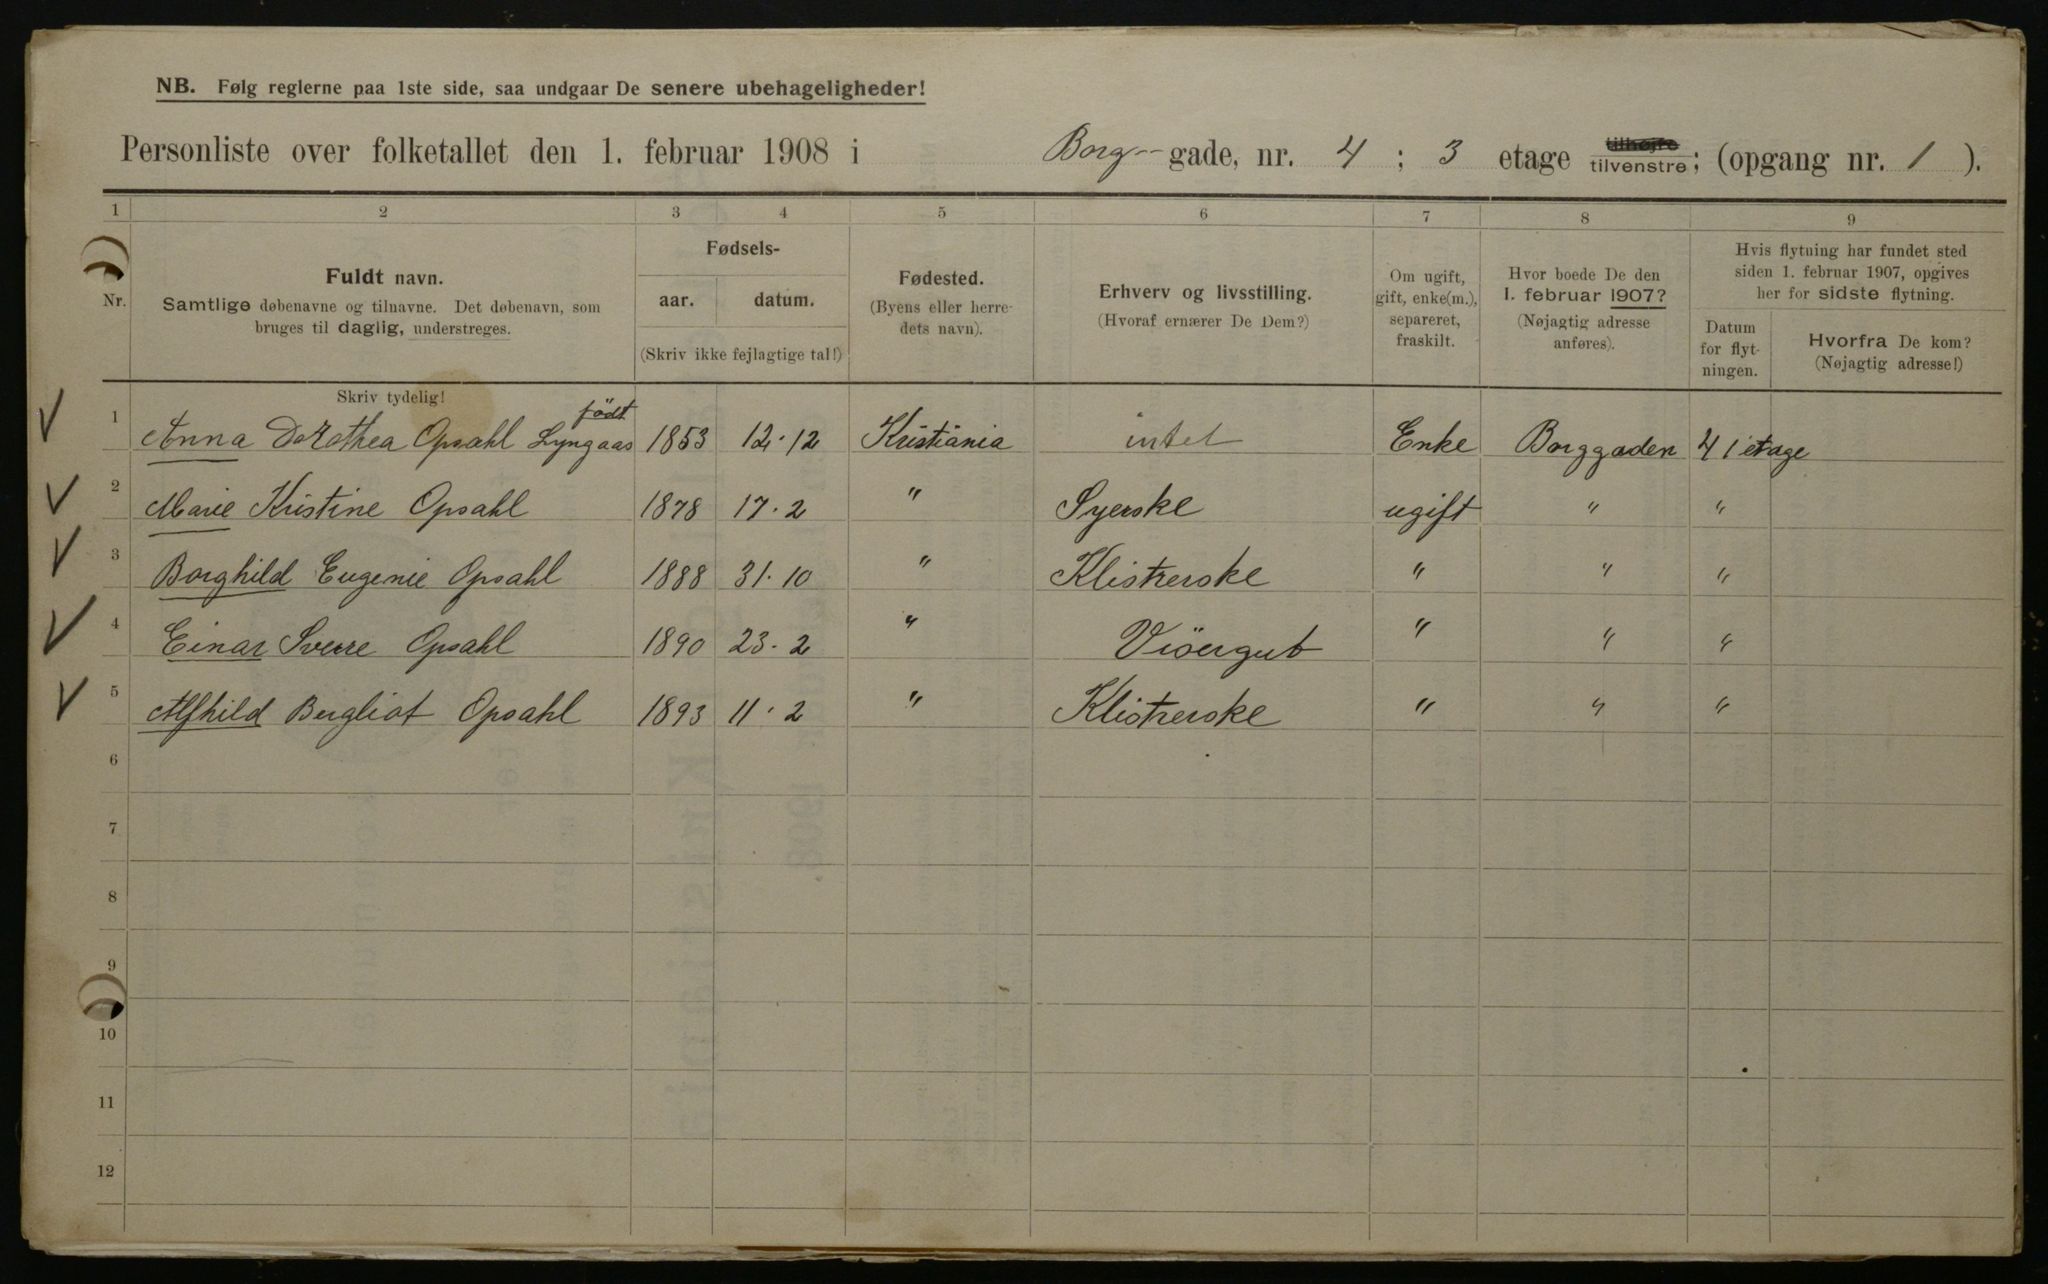 NB. Følg reglerne paa 1ste side, saa undgaar De senere ubehageligheder!
Personliste over folketallet den 1. februar 1908 i Borg-- gade, nr. 4 ; 3 etage tilhøjre tilvenstre; (opgang nr. 1 ).
1 2 3 4 5 6 7 8 9
Nr.
Fuldt navn.
Samtlige døbenavne og tilnavne. Det døbenavn, som
bruges til daglig, understreges.
Fødsels-
aar. datum.
(Skriv ikke fejlagtige tal!)
Fødested.
(Byens eller herre-
dets navn).
Erhverv og livsstilling.
(Hvoraf ernærer De Dem?)
Om ugift,
gift, enke(m.),
separeret,
fraskilt.
Hvor boede De den
1. februar 1907?
(Nøjagtig adresse
anføres).
Hvis flytning har fundet sted
siden 1. februar 1907, opgives
her for sidste flytning.
Datum
for flyt-
ningen.
Hvorfra De kom?
(Nøjagtig adresse!)
Skriv tydelig!
født
1 Anna Dorothea Opsahl Lyngaas 1853 12·12 Kristiania intet Enke Borggaden 4 1 etage
2 Marie Kristine Opsahl 1878 17·2 " Syerske ugift " "
3 Borghild Eugenie Opsahl 1888 31·10 " Klistrerske " " "
4 Einar Sverre Opsahl 1890 23·2 " Visergut " " "
5 Alfhild Bergliot Opsahl 1893 11·2 " Klistrerske " " "
6
7
8
9
10
11
12